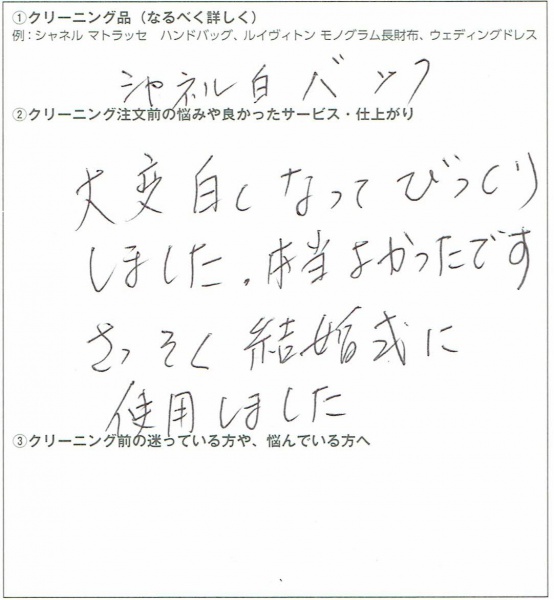 ①クリーニング品（なるべく詳しく）
例：シャネル マトラッセ　ハンドバッグ、ルイヴィトン モノグラム長財布、ウェディングドレス
シャネル白バック
②クリーニング注文前の悩みや良かったサービス・仕上がり
大変白くなってびっくり
しました。本当よかったです
さっそく結婚式に
使用しました
③クリーニング前の迷っている方や、悩んでいる方へ